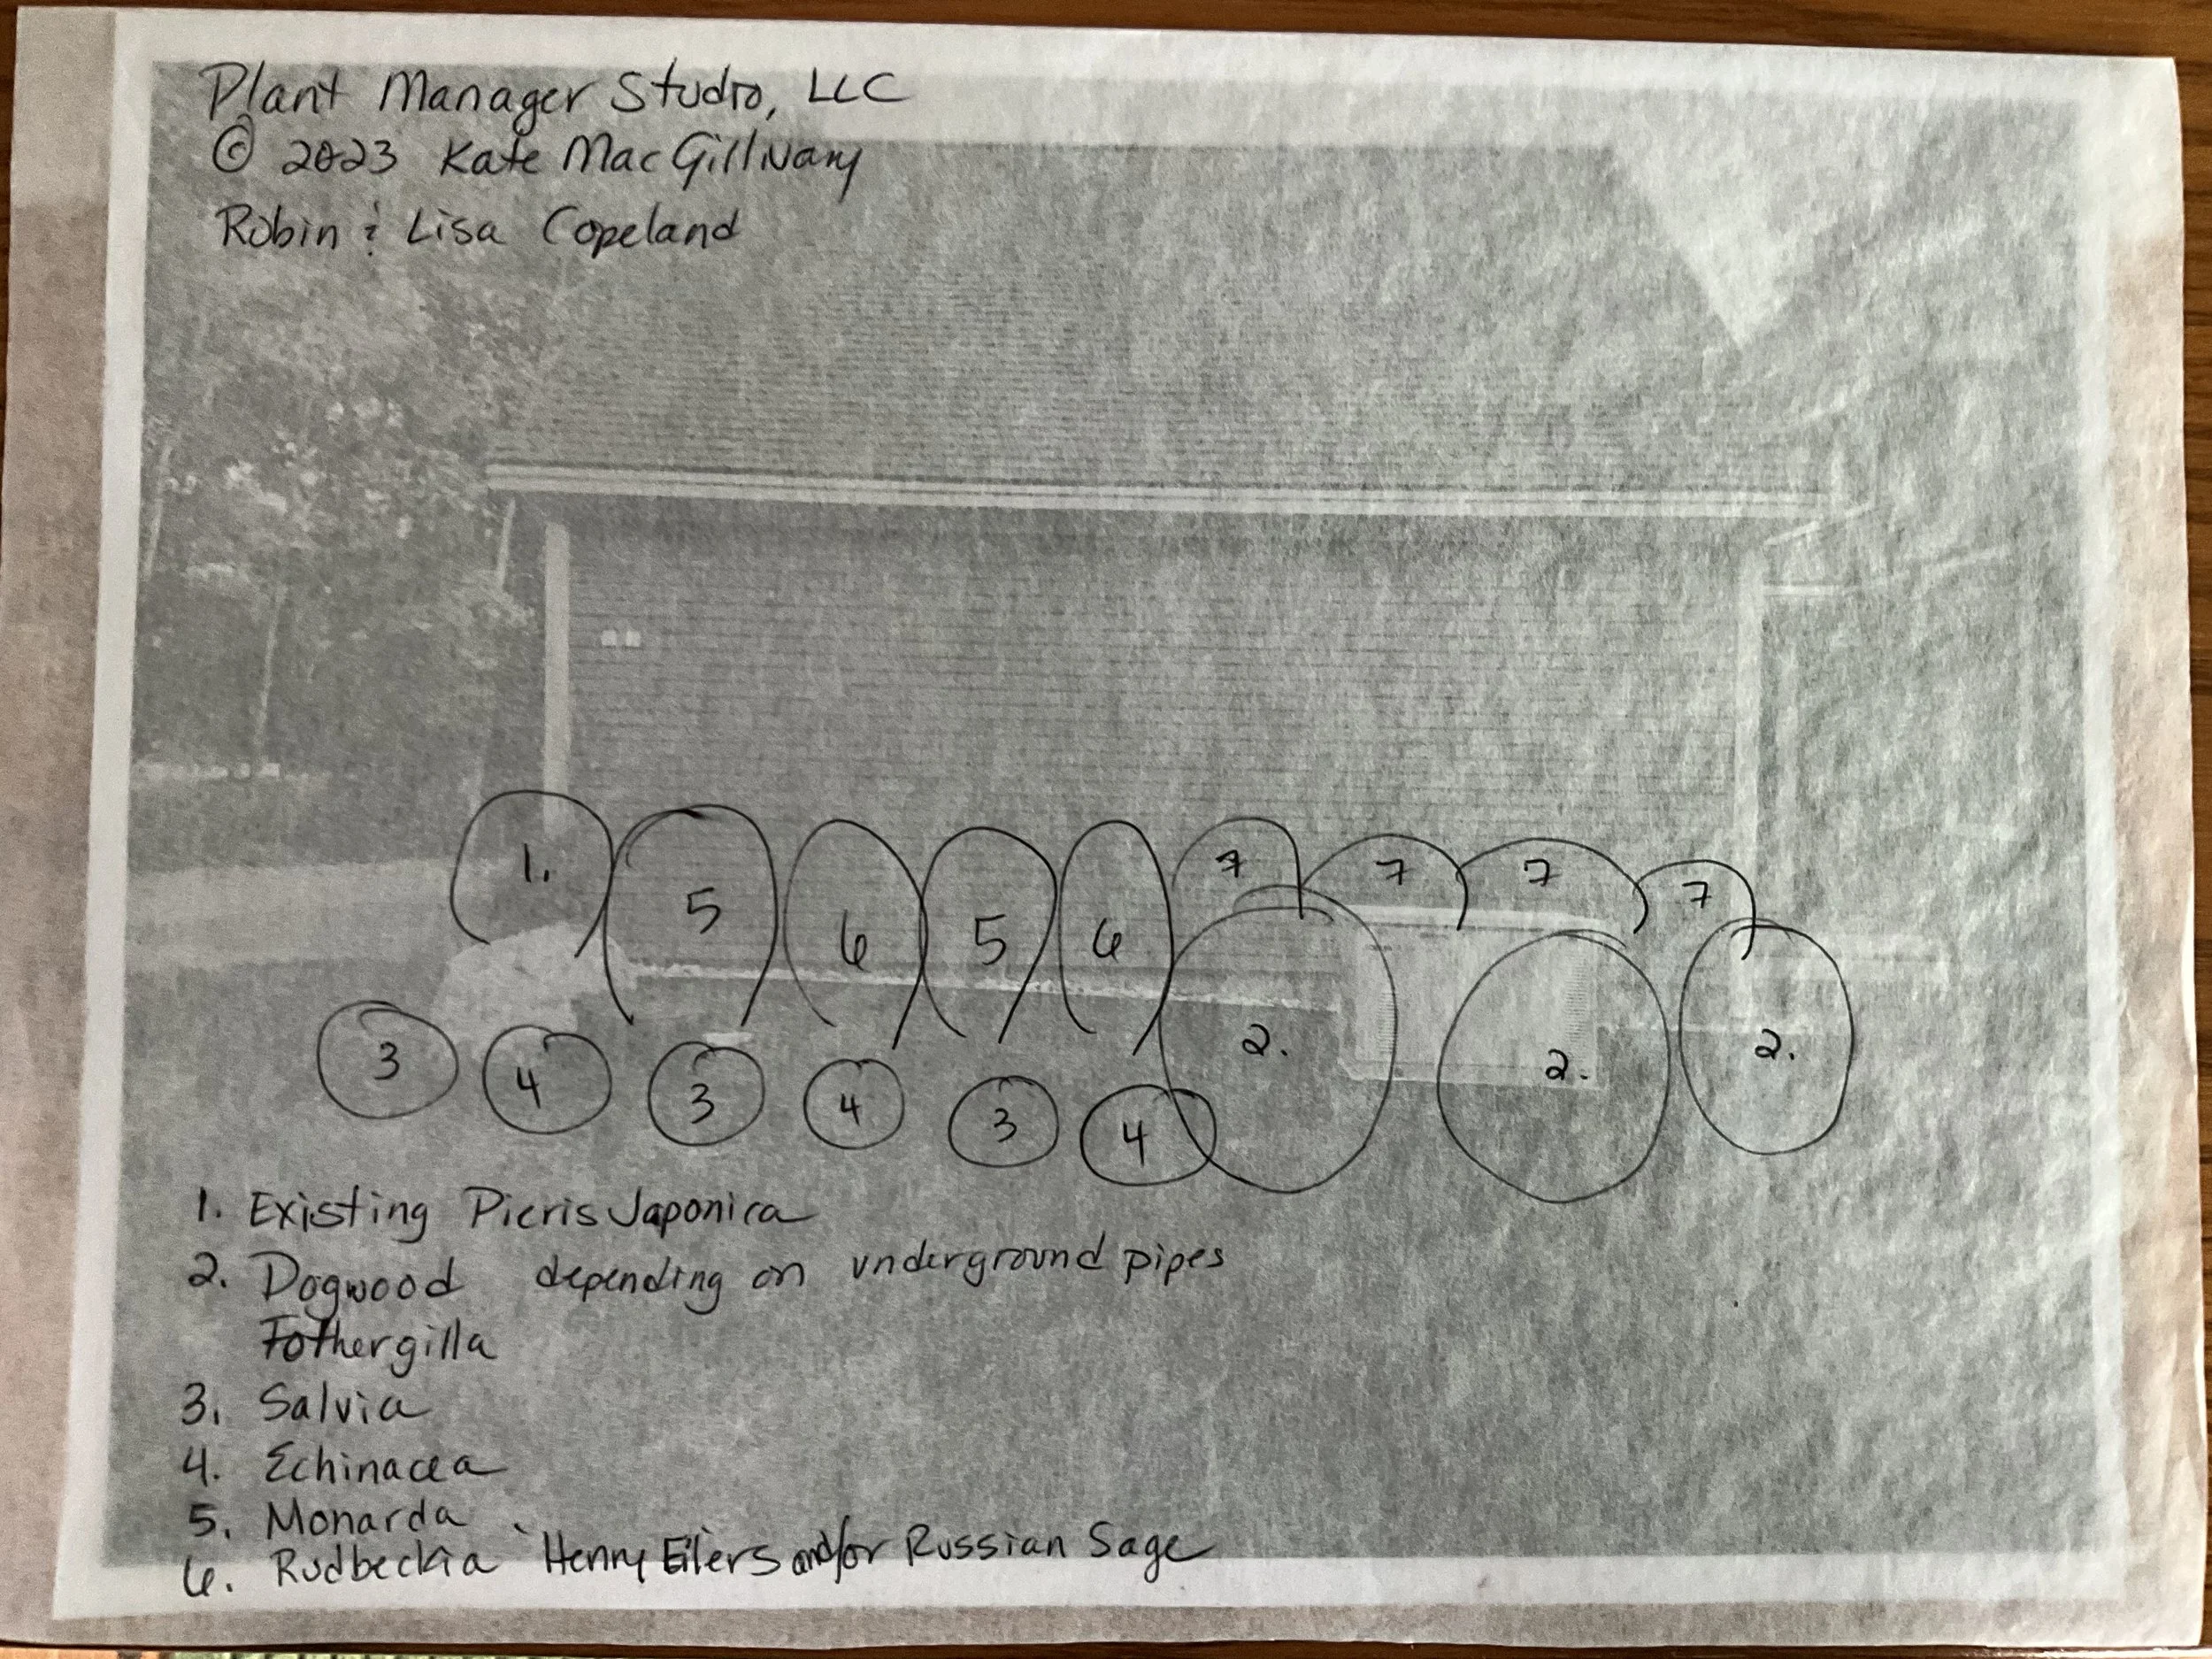 Plant Manager Studio, LLC
© 2023 Kate MacGillivary
Robin & Lisa Copeland
1.
5
6
5
6
7
7
7
7
2.
2.
2.
3
4
3
4
3
4
1. Existing Pieris Japonica
2. Dogwood depending on underground pipes
Fothergilla
3. Salvia
4. Echinacea
5. Monarda
6. Rudbeckia 'Henry Eilers and/or Russian Sage